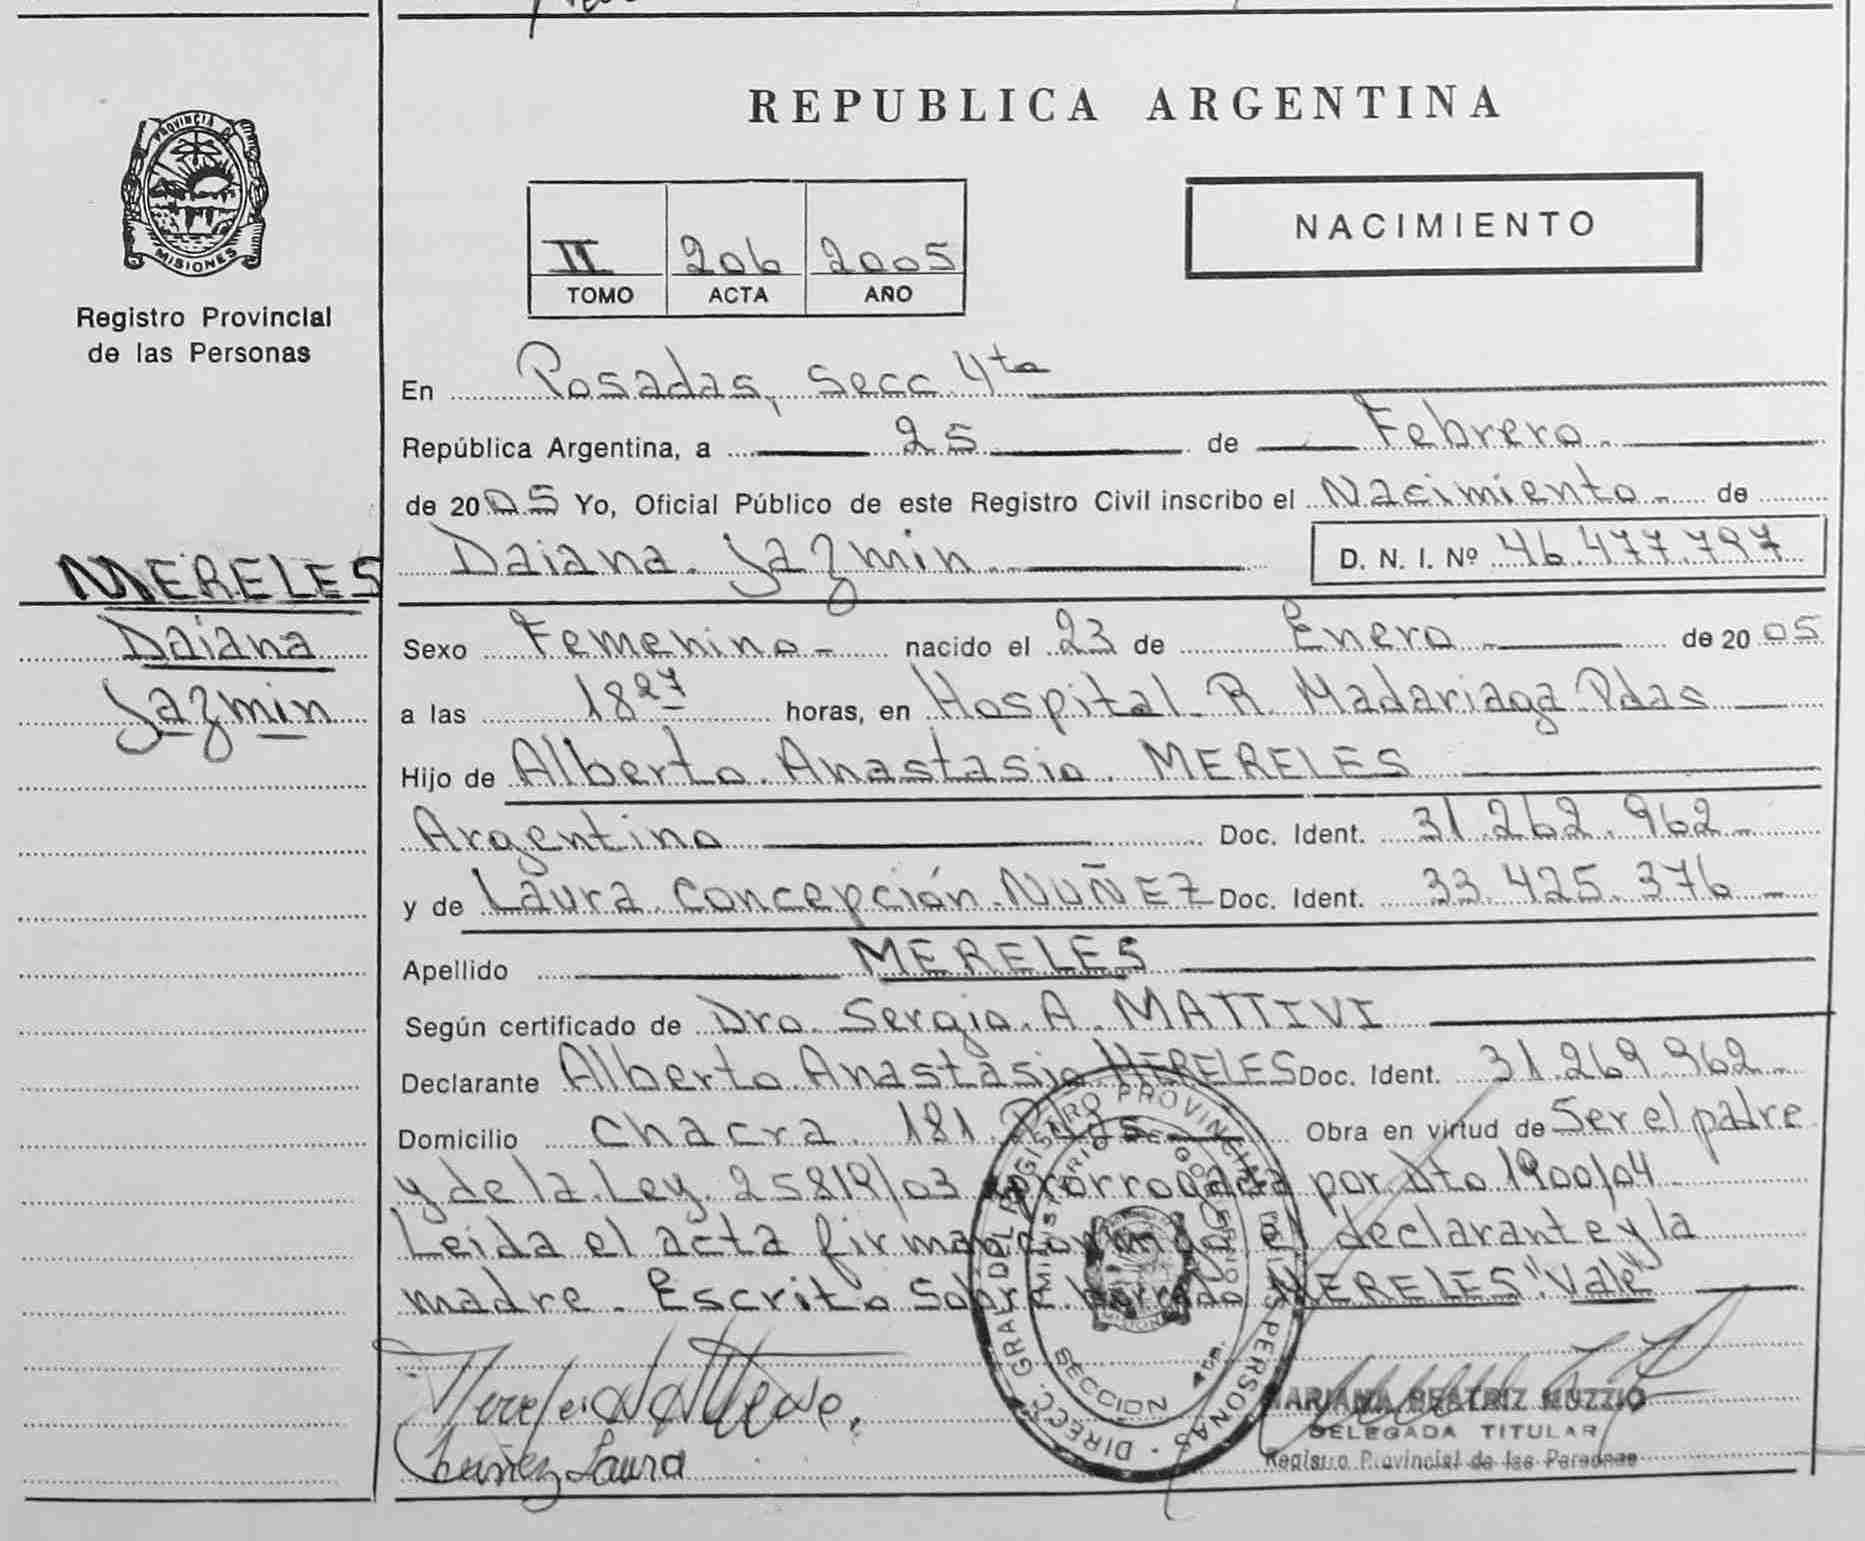 PROVINCIA DE
MISIONES
Registro Provincial
de las Personas
MERELES
Daiana
Jazmin
REPUBLICA ARGENTINA
NACIMIENTO
II 206 2005
TOMO ACTA AÑO
En Posadas, Secc 4ta
República Argentina, a 25 de Febrero.
de 2005 Yo, Oficial Público de este Registro Civil inscribo el Nacimiento - de
Daiana Jazmin D. N. I. Nº 46.477.797
Sexo Femenino - nacido el 23 de Enero de 2005
a las 18 27 horas, en Hospital R. Madariaga Pdas
Hijo de Alberto Anastasio MERELES
Argentino Doc. Ident. 31.262.962 -
y de Laura Concepción NUÑEZ Doc. Ident. 33.425.376 -
Apellido MERELES
Según certificado de Dro. Sergio A. MATTIVI
Declarante Alberto Anastasio MERELES Doc. Ident. 31.269.962 -
Domicilio Chacra 181 Pdas Obra en virtud de Ser el padre
y de la Ley 25819/03 prorrogada por Dto 1900/04
Leida el acta firman conmigo el declarante y la
madre - Escrito Sobre borrado MERELES "Vale"
DIRECC. GRAL DEL REGISTRO PROVINCIAL DE LAS PERSONAS
MINISTERIO DE GOBIERNO
SECCION 4ta.
Nuñez Laura
MARIANA BEATRIZ MUZZIO
DELEGADA TITULAR
Registro Provincial de las Personas